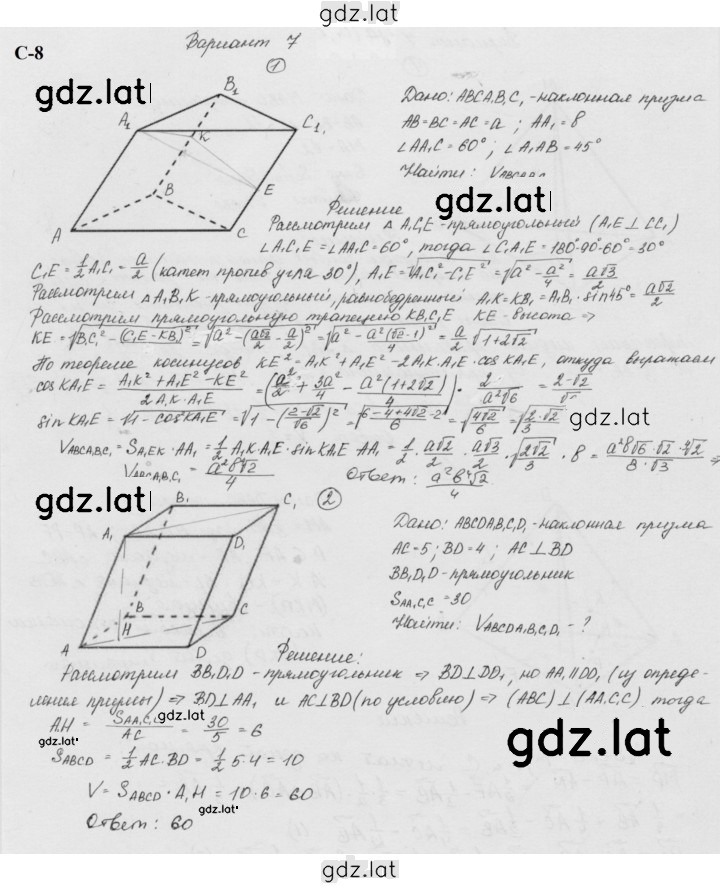 gdz.lat
С-8
Вариант 7
1
gdz.lat
B₁
A₁
C₁
K
B
E
A
C
Дано: ABCA₁B₁C₁ - наклонная призма
AB=BC=AC=a ; AA₁=в
∠AA₁C=60° ; ∠A₁AB=45°
Найти:
gdz.lat
Решение
Рассмотрим △A₁C₁E - прямоугольный (A₁E⊥CC₁)
∠A₁C₁E=∠AA₁C=60°, тогда ∠C₁A₁E=180°-90°-60°=30°
C₁E=½A₁C₁=a/2 (катет против угла 30°), A₁E=√(A₁C₁²-C₁E²)=√(a²-a²/4)=a√3/2
Рассмотрим △A₁B₁K - прямоугольный, равнобедренный A₁K=KB₁=A₁B₁·sin45°=a√2/2
Рассмотрим прямоугольную трапецию KB₁C₁E KE - высота ⇒
KE=√(B₁C₁²-(C₁E-KB₁)²)=√(a²-(a√2/2-a/2)²)=√(a²-a²(√2-1)²/4)=a/2√(1+2√2)
По теореме косинусов KE²=A₁K²+A₁E²-2A₁K·A₁E·cosKA₁E, откуда выражаем
cosKA₁E=(A₁K²+A₁E²-KE²)/(2A₁K·A₁E)=(a²/2+3a²/4-a²(1+2√2)/4)·2/(a²√6)=(2-√2)/√6
sinKA₁E=√(1-cosKA₁E²)=√(1-((2-√2)/√6)²)=√((6-4+4√2-2)/6)=√(4√2/6)=√(2√2/3)
V_ABCA₁B₁C₁=S_A₁EK·AA₁=½A₁K·A₁E·sinKA₁E·AA₁=½·a√2/2·a√3/2·√(2√2/3)·в=(a²в√6·√2·∜2)/(8·√3)⇒
V_ABCA₁B₁C₁=a²в∜2/4 Ответ: a²в∜2/4
gdz.lat
2
B₁
C₁
A₁
D₁
B
H
C
A
D
Дано: ABCDA₁B₁C₁D₁ - наклонная призма
AC=5 ; BD=4 ; AC⊥BD
BB₁D₁D - прямоугольник
S_AA₁C₁C=30
Найти: V_ABCDA₁B₁C₁D₁ - ?
Решение:
Рассмотрим BB₁D₁D - прямоугольник ⇒ BD⊥DD₁, но AA₁||DD₁ (из опреде-
ления призмы) ⇒ BD⊥AA₁ и AC⊥BD (по условию) ⇒ (ABC)⊥(AA₁C₁C) тогда
A₁H=S_AA₁C₁C/AC=30/5=6
gdz.lat
S_ABCD=½AC·BD=½5·4=10
V=S_ABCD·A₁H=10·6=60
gdz.lat
Ответ: 60
gdz.lat
gdz.lat